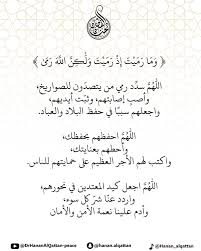 ﴿ وَمَا رَمَيْتَ إِذْ رَمَيْتَ وَلَٰكِنَّ اللَّهَ رَمَىٰ ﴾
اللَّهُمَّ سدِّد رمي من يتصدّون للصواريخ،
وأصب إصابتهم، وثبّت أيديهم،
واجعلهم سببًا في حفظ البلاد والعباد.
اللَّهُمَّ احفظهم بحفظك،
وأحطهم بعنايتك،
واكتب لهم الأجر العظيم على حمايتهم للناس.
اللَّهُمَّ اجعل كيد المعتدين في نحورهم،
واردد عنّا شرّ كل سوء،
وأدم علينا نعمة الأمن والأمان
@DrHananAlQattan-peace @hanan.alqattan @hanan_alqattan